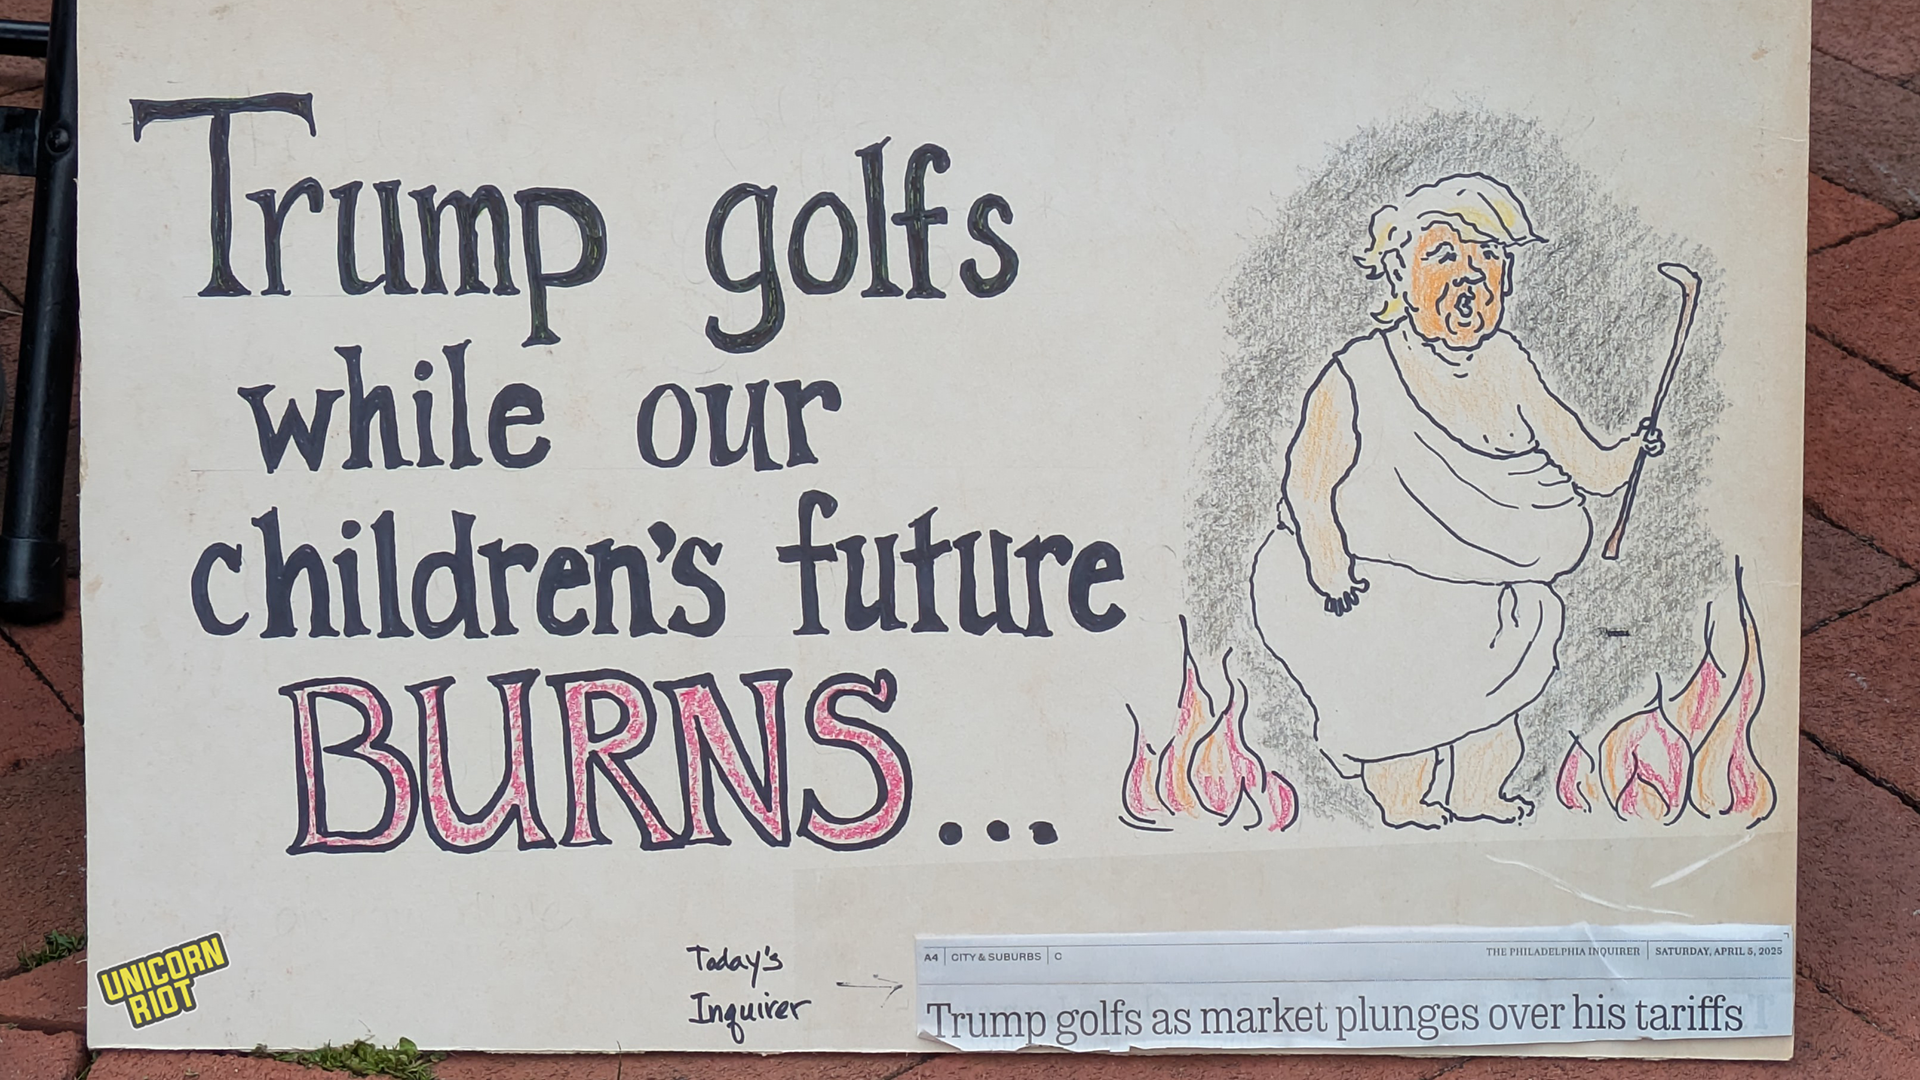 Trump golfs
while our
children's future
BURNS...
UNICORN
RIOT
Today's
Inquirer
A4 | CITY & SUBURBS | C
THE PHILADELPHIA INQUIRER | SATURDAY, APRIL 5, 2025
Trump golfs as market plunges over his tariffs